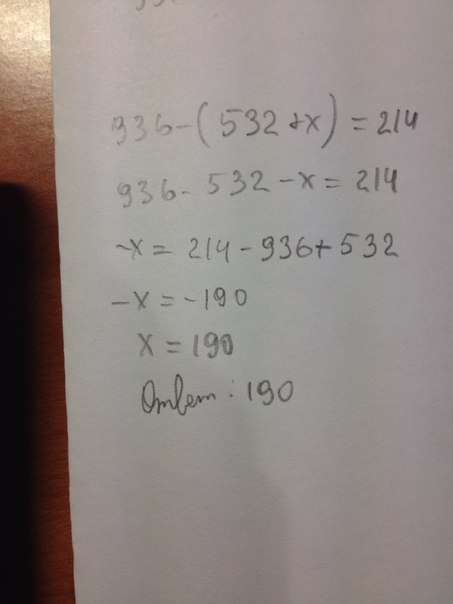 936-(532+x)=214
936-532-x=214
-x=214-936+532
-x=-190
x=190
Ответ: 190